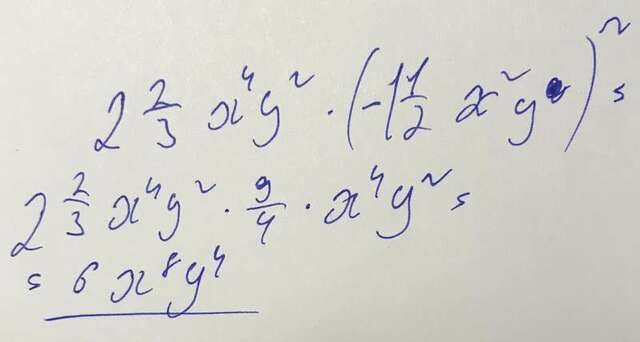 2 2/3 x⁴y² · (-1 1/2 x²y)² =
2 2/3 x⁴y² · 9/4 · x⁴y² =
= 6x⁸y⁴